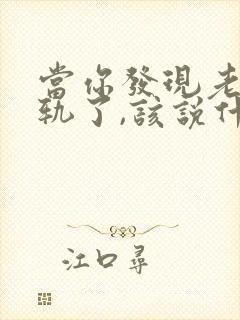 當你發現老
軌了,該說什
江口尋